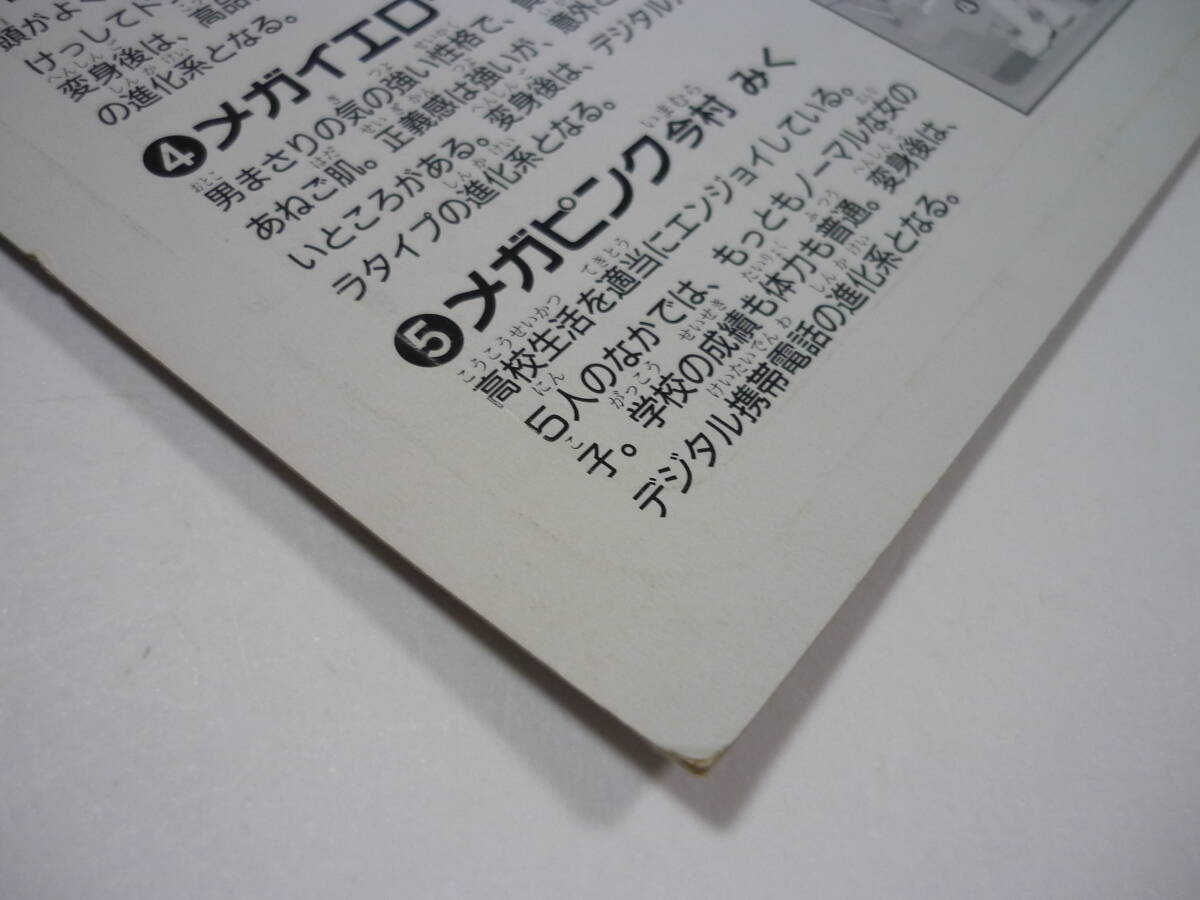 頭がよく
けっしてド
変身後は、高品
の進化系となる。
❹メガイエロ
男まさりの気の強い性格で、
あねご肌。正義感は強いが、意外と
いところがある。変身後は、デジタル
ラタイプの進化系となる。
❺メガピンク今村 みく
高校生活を適当にエンジョイしている。
5人のなかでは、もっともノーマルな女の
子。学校の成績も体力も普通。変身後は、
デジタル携帯電話の進化系となる。